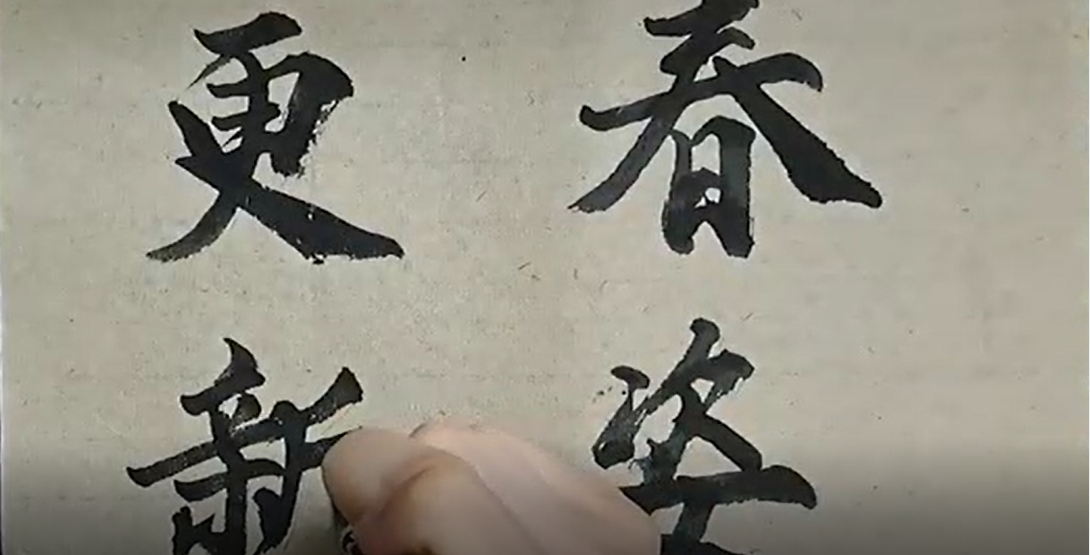 春姿
更新